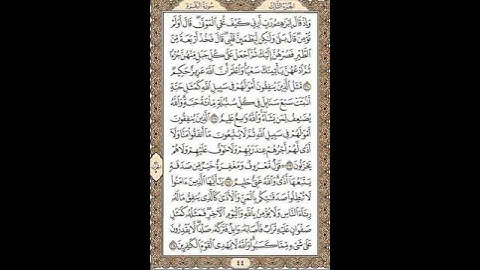 سُورَةُ البَقَرَةِ
الجُزْءُ الثَّالِثُ
وَإِذْ قَالَ إِبْرَٰهِـۧمُ رَبِّ أَرِنِي كَيْفَ تُحْيِ ٱلْمَوْتَىٰ قَالَ أَوَلَمْ
تُؤْمِن قَالَ بَلَىٰ وَلَٰكِن لِّيَطْمَئِنَّ قَلْبِي قَالَ فَخُذْ أَرْبَعَةً مِّنَ
ٱلطَّيْرِ فَصُرْهُنَّ إِلَيْكَ ثُمَّ ٱجْعَلْ عَلَىٰ كُلِّ جَبَلٍ مِّنْهُنَّ جُزْءًا
ثُمَّ ٱدْعُهُنَّ يَأْتِينَكَ سَعْيًا وَٱعْلَمْ أَنَّ ٱللَّهَ عَزِيزٌ حَكِيمٌ
مَّثَلُ ٱلَّذِينَ يُنفِقُونَ أَمْوَٰلَهُمْ فِي سَبِيلِ ٱللَّهِ كَمَثَلِ حَبَّةٍ
أَنۢبَتَتْ سَبْعَ سَنَابِلَ فِي كُلِّ سُنۢبُلَةٍ مِّا۟ئَةُ حَبَّةٍ وَٱللَّهُ
يُضَٰعِفُ لِمَن يَشَآءُ وَٱللَّهُ وَٰسِعٌ عَلِيمٌ ٱلَّذِينَ يُنفِقُونَ
أَمْوَٰلَهُمْ فِي سَبِيلِ ٱللَّهِ ثُمَّ لَا يُتْبِعُونَ مَآ أَنفَقُوا۟ مَنًّا وَلَآ
أَذًى لَّهُمْ أَجْرُهُمْ عِندَ رَبِّهِمْ وَلَا خَوْفٌ عَلَيْهِمْ وَلَا هُمْ
يَحْزَنُونَ قَوْلٌ مَّعْرُوفٌ وَمَغْفِرَةٌ خَيْرٌ مِّن صَدَقَةٍ
يَتْبَعُهَآ أَذًى وَٱللَّهُ غَنِيٌّ حَلِيمٌ يَٰٓأَيُّهَا ٱلَّذِينَ ءَامَنُوا۟
لَا تُبْطِلُوا۟ صَدَقَٰتِكُم بِٱلْمَنِّ وَٱلْأَذَىٰ كَٱلَّذِي يُنفِقُ مَالَهُۥ
رِئَآءَ ٱلنَّاسِ وَلَا يُؤْمِنُ بِٱللَّهِ وَٱلْيَوْمِ ٱلْءَاخِرِ فَمَثَلُهُۥ كَمَثَلِ
صَفْوَانٍ عَلَيْهِ تُرَابٌ فَأَصَابَهُۥ وَابِلٌ فَتَرَكَهُۥ صَلْدًا لَّا يَقْدِرُونَ
عَلَىٰ شَيْءٍ مِّمَّا كَسَبُوا۟ وَٱللَّهُ لَا يَهْدِي ٱلْقَوْمَ ٱلْكَٰفِرِينَ
٤٤